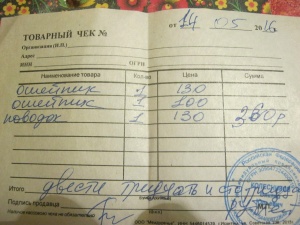 ТОВАРНЫЙ ЧЕК №
от 14 5 2016г.
Организация (И.П.)
Адрес
ИНН ОГРН
Наименование товара Кол-во Цена Сумма
ошейник 1 130
ошейник 1 100
поводок 1 130 260р
Итого двести тридцать и сто тридцать
Подпись продавца